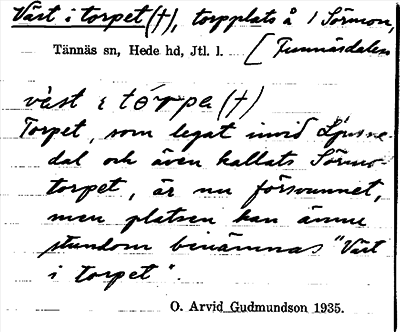 Väst i torpet (†), torpplats å / Sörmon,
Tännäs sn, Hede hd, Jtl. l. [Funnäsdalen
väst i tórpe (†)
Torpet, som legat invid Ljusne-
dal och även kallats Sörmo-
torpet, är nu försvunnet,
men platsen kan ännu
stundom benämnas "Väst
i torpet".
O. Arvid Gudmundson 1935.